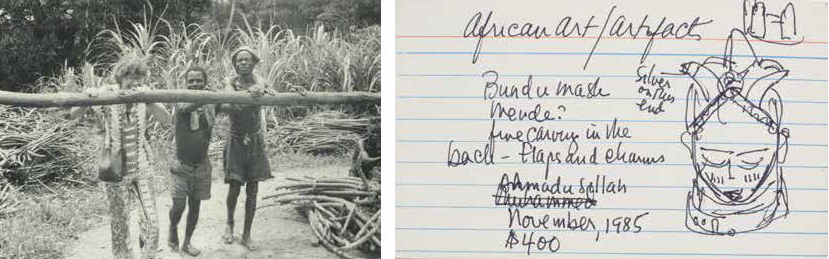 African art/artifacts
Bundu mask
Mende?
fine carving in the
back - flaps and charms
Silver
on this
end
Ahmadu Sillah
November, 1985
$400